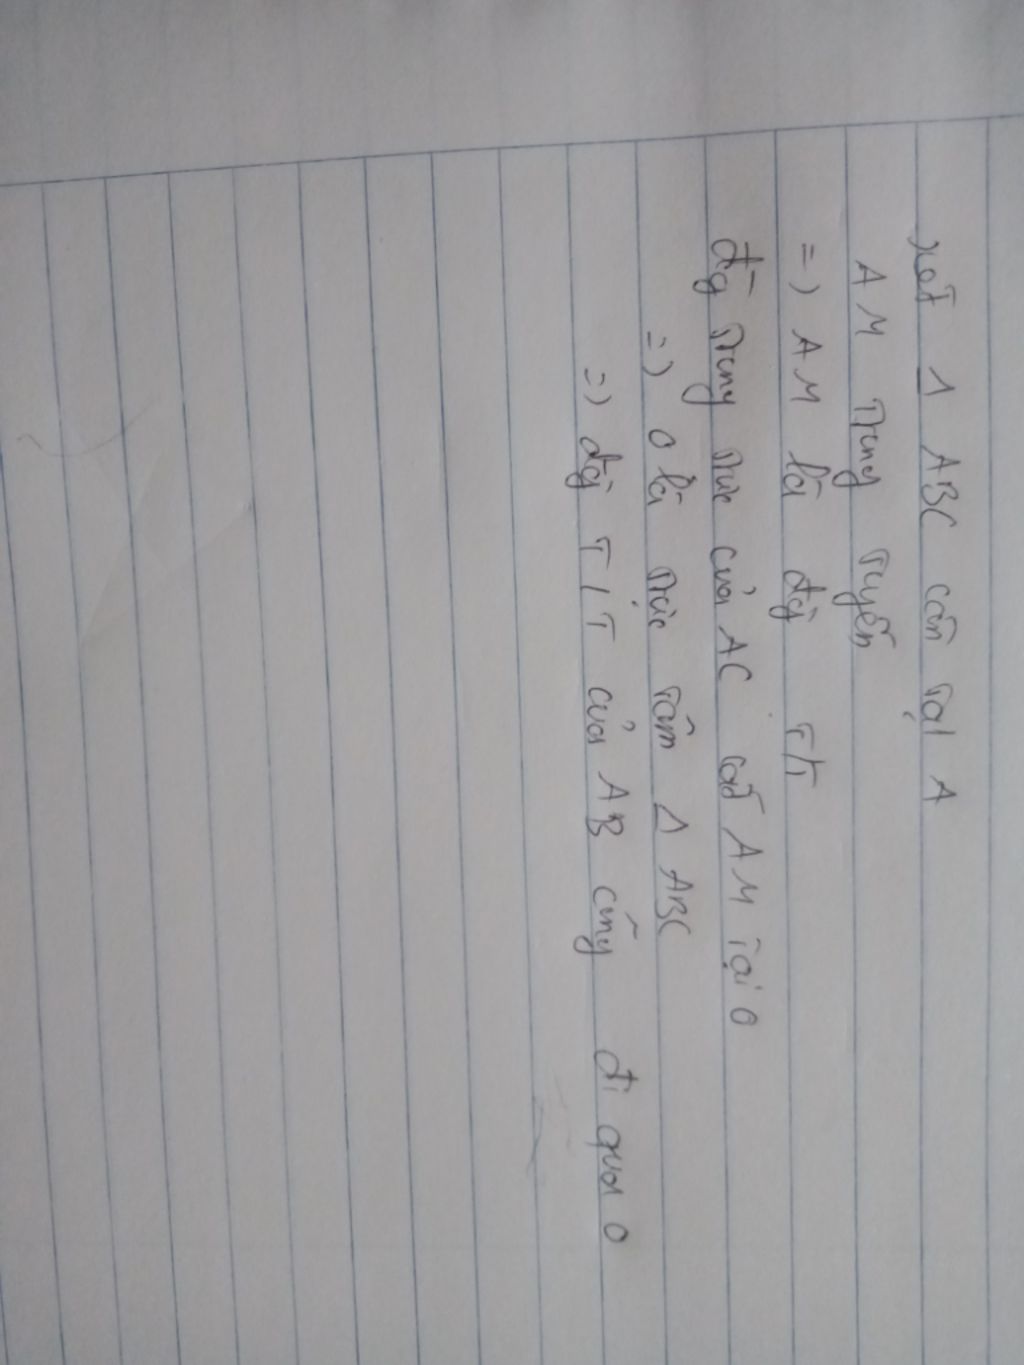 xét Δ ABC cân tại A
AM trung tuyến
=) AM là đg T/T
đg trung trực của AC cắt AM tại O
=) O là trực tâm Δ ABC
=) đg T/T của AB cũng đi qua O